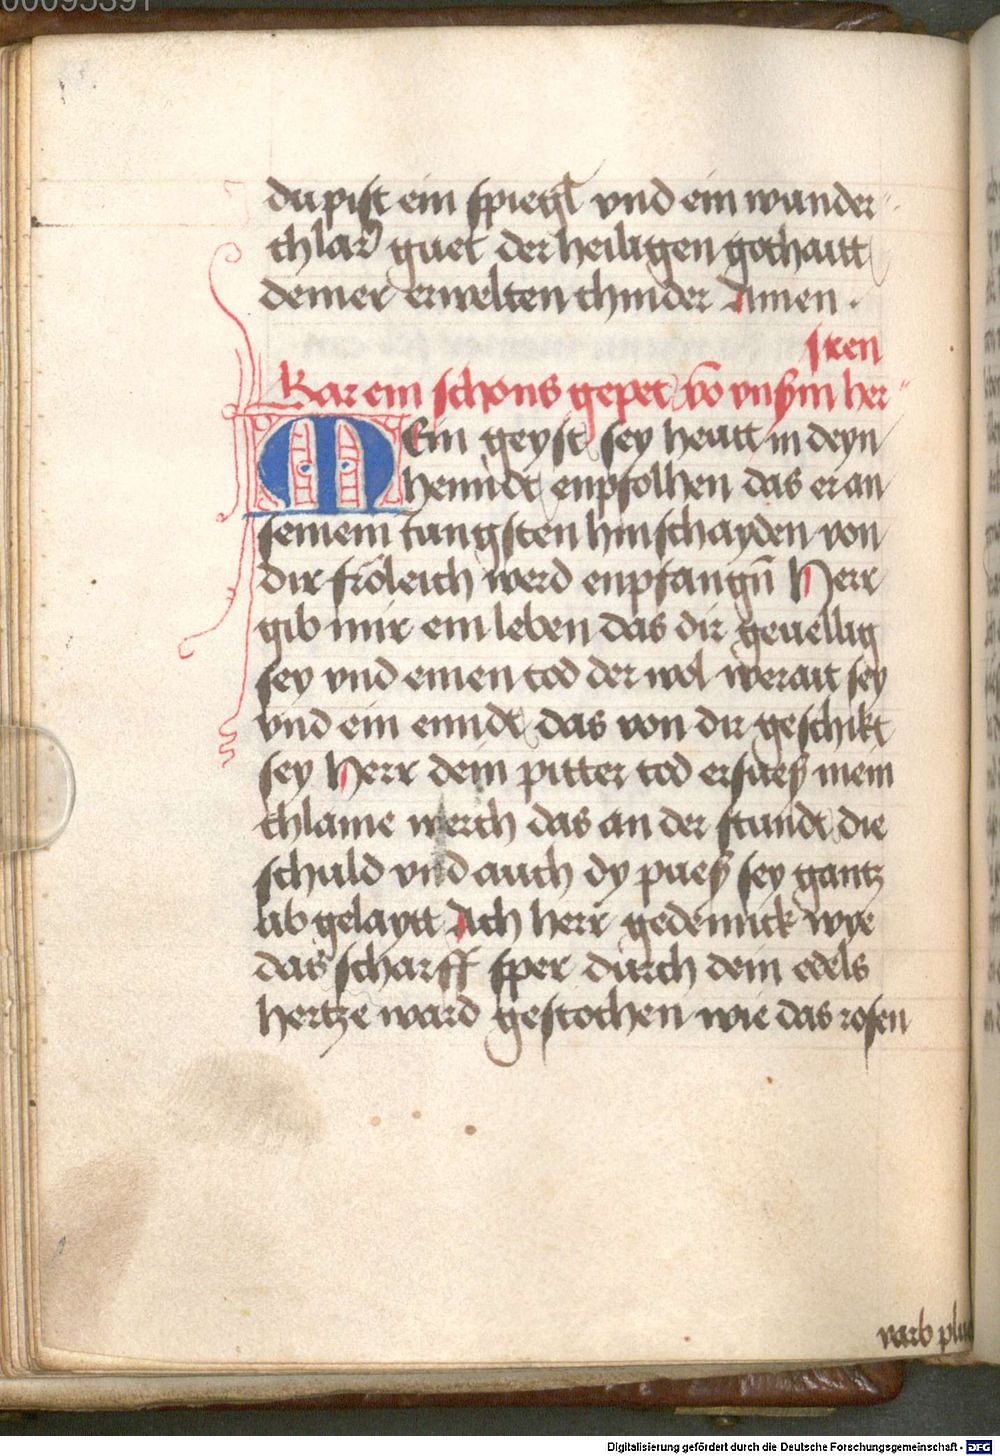 00095391
du pist ein spiegl vnd ein wunder
chlar guet der heiligen gothaitt
deiner erwelten chinder Amen .
iren
Gar ein schons gepet võ vnsm her
MEin geyst sey heutt in deyn
henndt enpfolhen das er an
seinem iungsten hinschayden von
dir fröleich werd enpfangn̄ Herr
gib mir ein leben das dir geuellig
sey vnd einen tod der wol werait sey
vnd ein enndt das von dir geschikt
sey Herr dein pitter tod ersueß mein
chlaine werch das an der stundt die
schuld vnd auch dy pueß sey gantz
ab gelaytt Ach herr gedennck wye
das scharff sper durch dein edels
hertze ward gestochen wie das rosen
varb plu
Digitalisierung gefördert durch die Deutsche Forschungsgemeinschaft - DFG